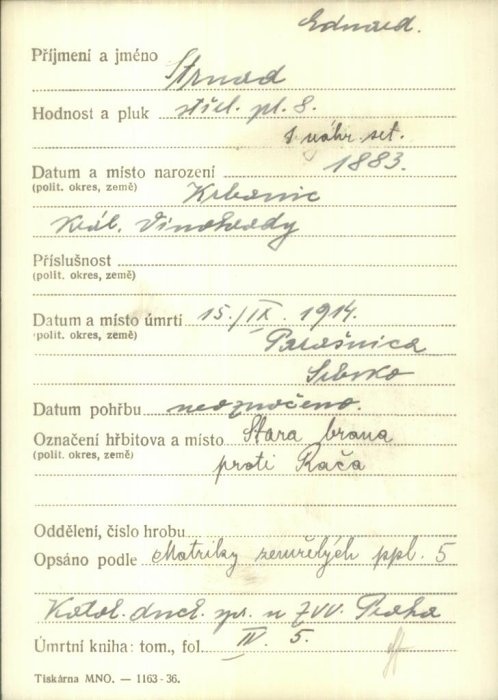 Eduard.
Příjmení a jméno Strnad
Hodnost a pluk střel. pl. 8.
1 náhr. set.
Datum a místo narození 1883.
(polit. okres, země) Krbanic
Král. Vinohrady
Příslušnost
(polit. okres, země)
Datum a místo úmrtí 15./IX. 1914.
(polit. okres, země) Parašnica
Srbsko
Datum pohřbu neoznačeno.
Označení hřbitova a místo Stara brana
(polit. okres, země) proti Rača
Oddělení, číslo hrobu
Opsáno podle Matriky zemřelých ppl. 5
Katol. duch. spr. u ZVV. Praha
Úmrtní kniha: tom., fol. IV. 5.
Tiskárna MNO. — 1163-36.